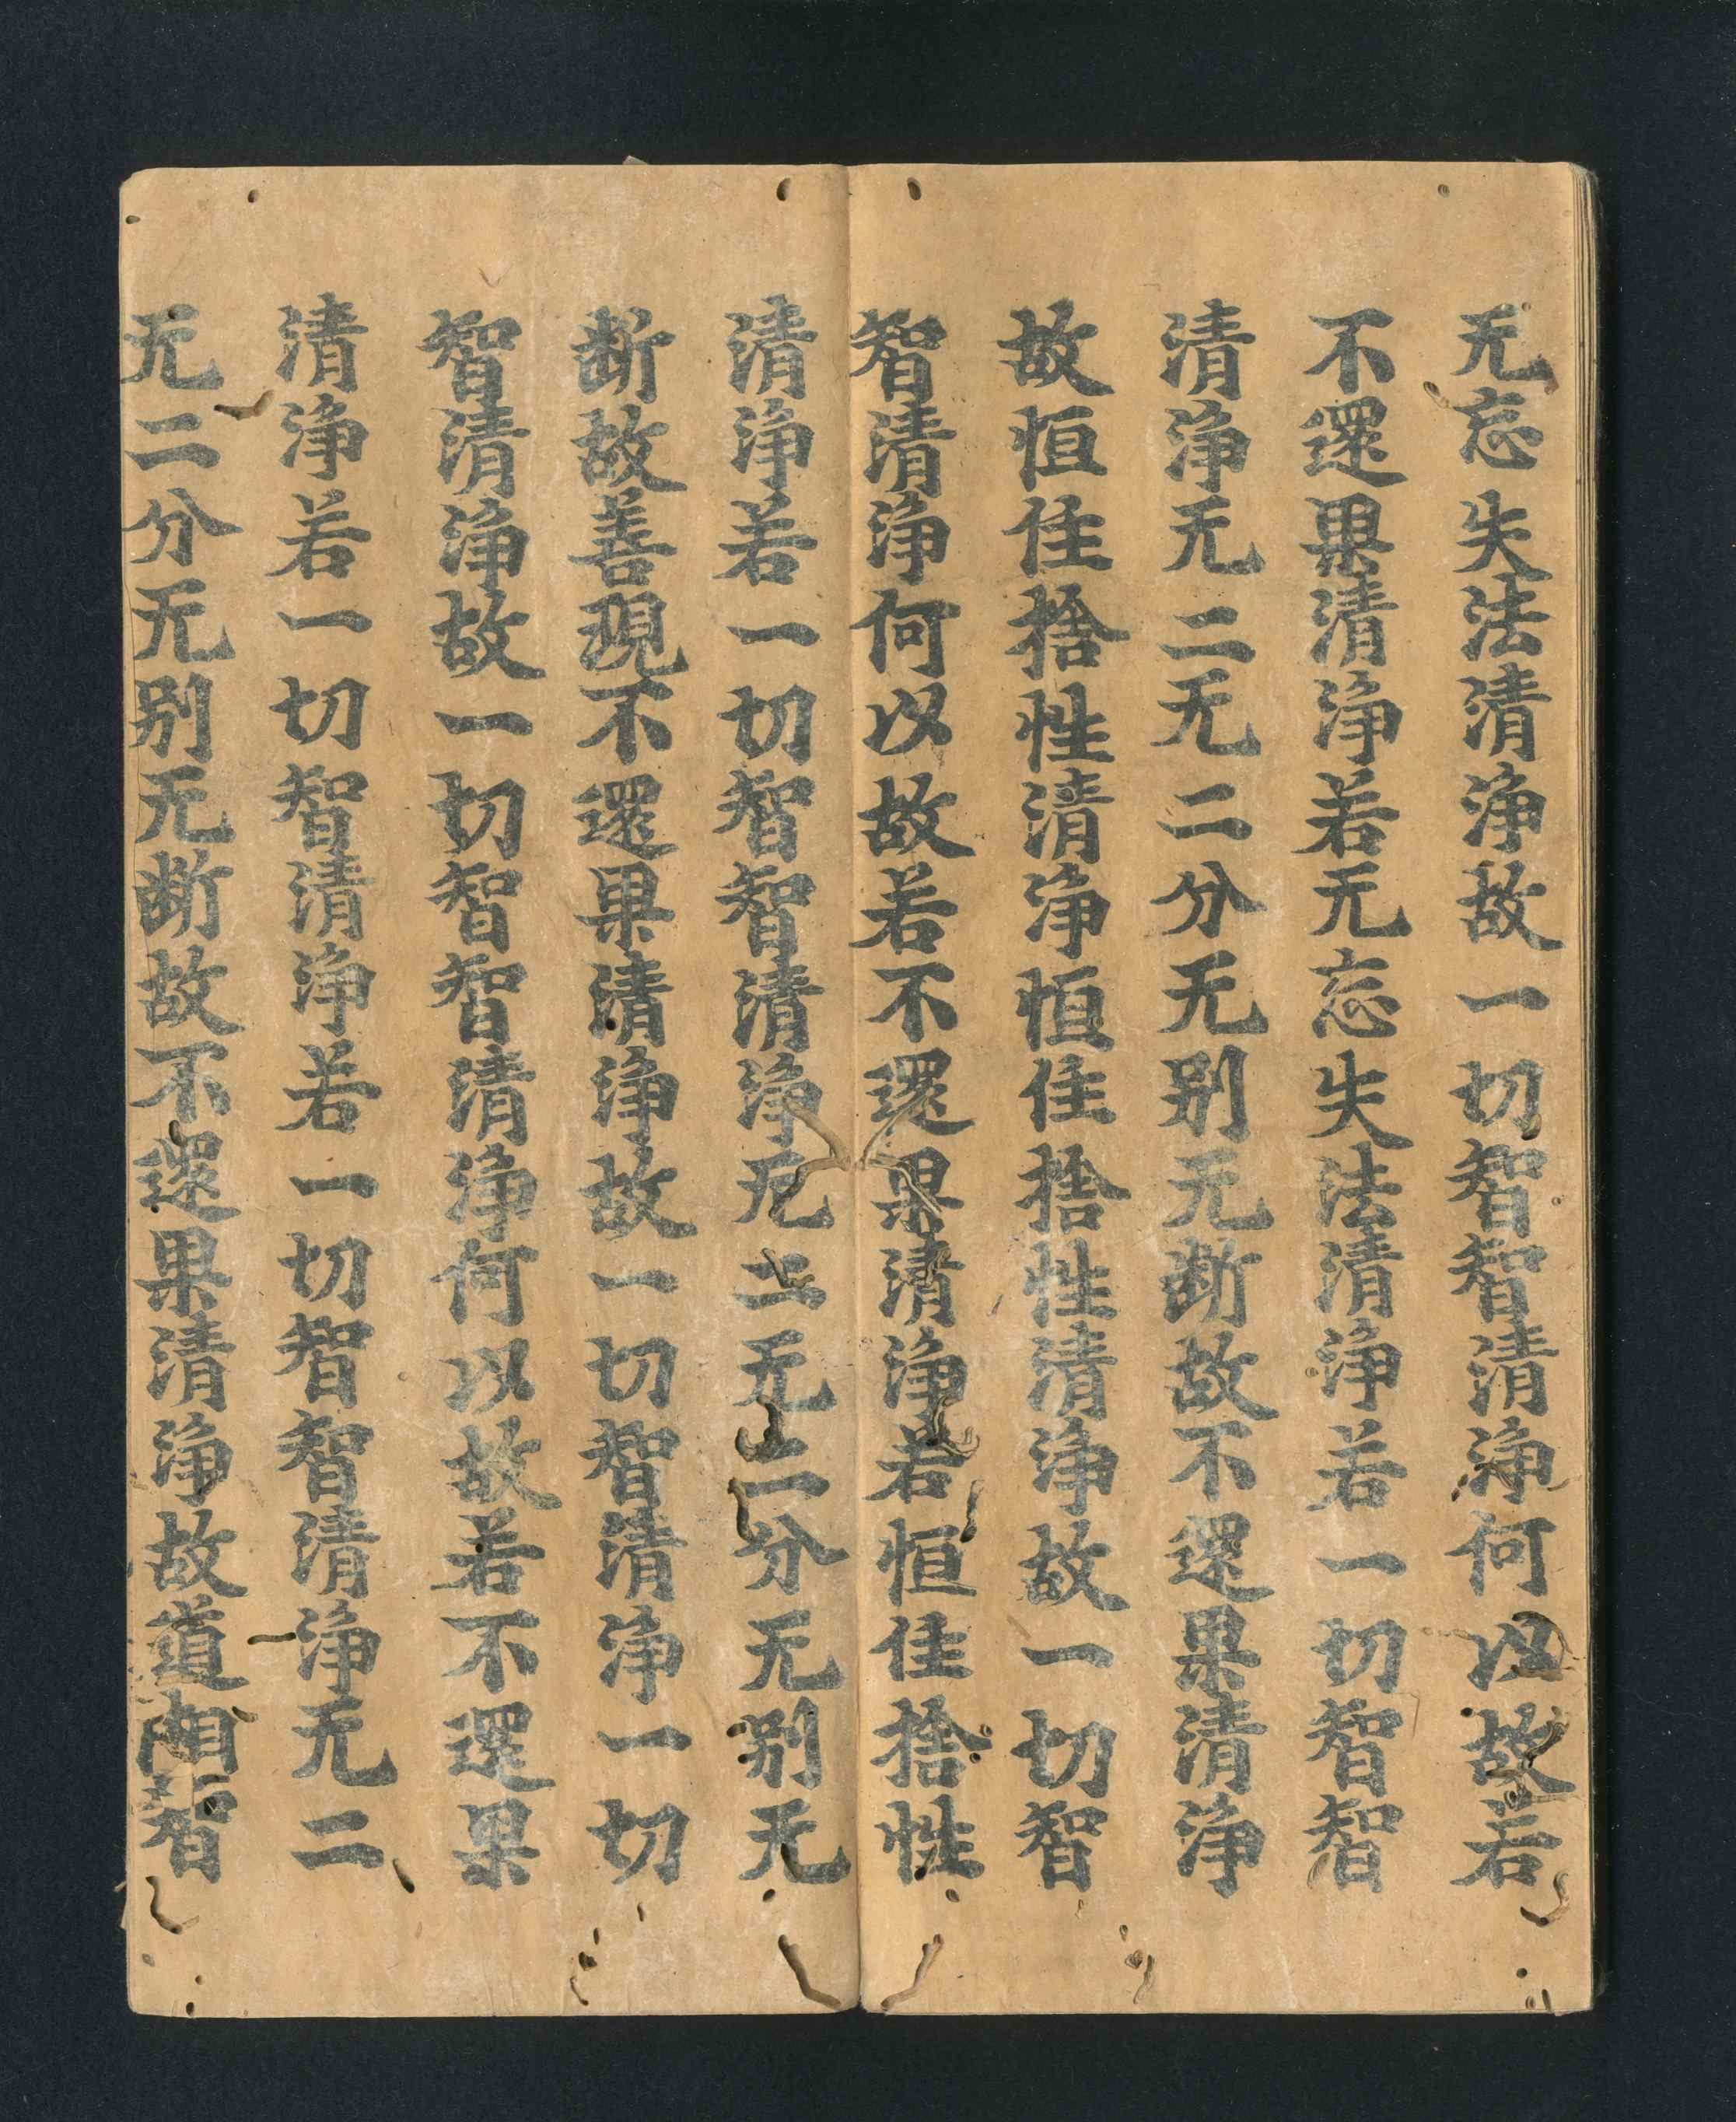 无忘失法清浄故一切智智清浄何以故若
不還果清浄若无忘失法清浄若一切智智
清浄无二无二分无别无断故不還果清浄
故恒住捨性清浄恒住捨性清浄故一切智
智清浄何以故若不還果清浄若恒住捨性
清浄若一切智智清浄无二无二分无别无
断故善現不還果清浄故一切智清浄一切
智清浄故一切智智清浄何以故若不還果
清浄若一切智清浄若一切智智清浄无二
无二分无别无断故不還果清浄故道相智